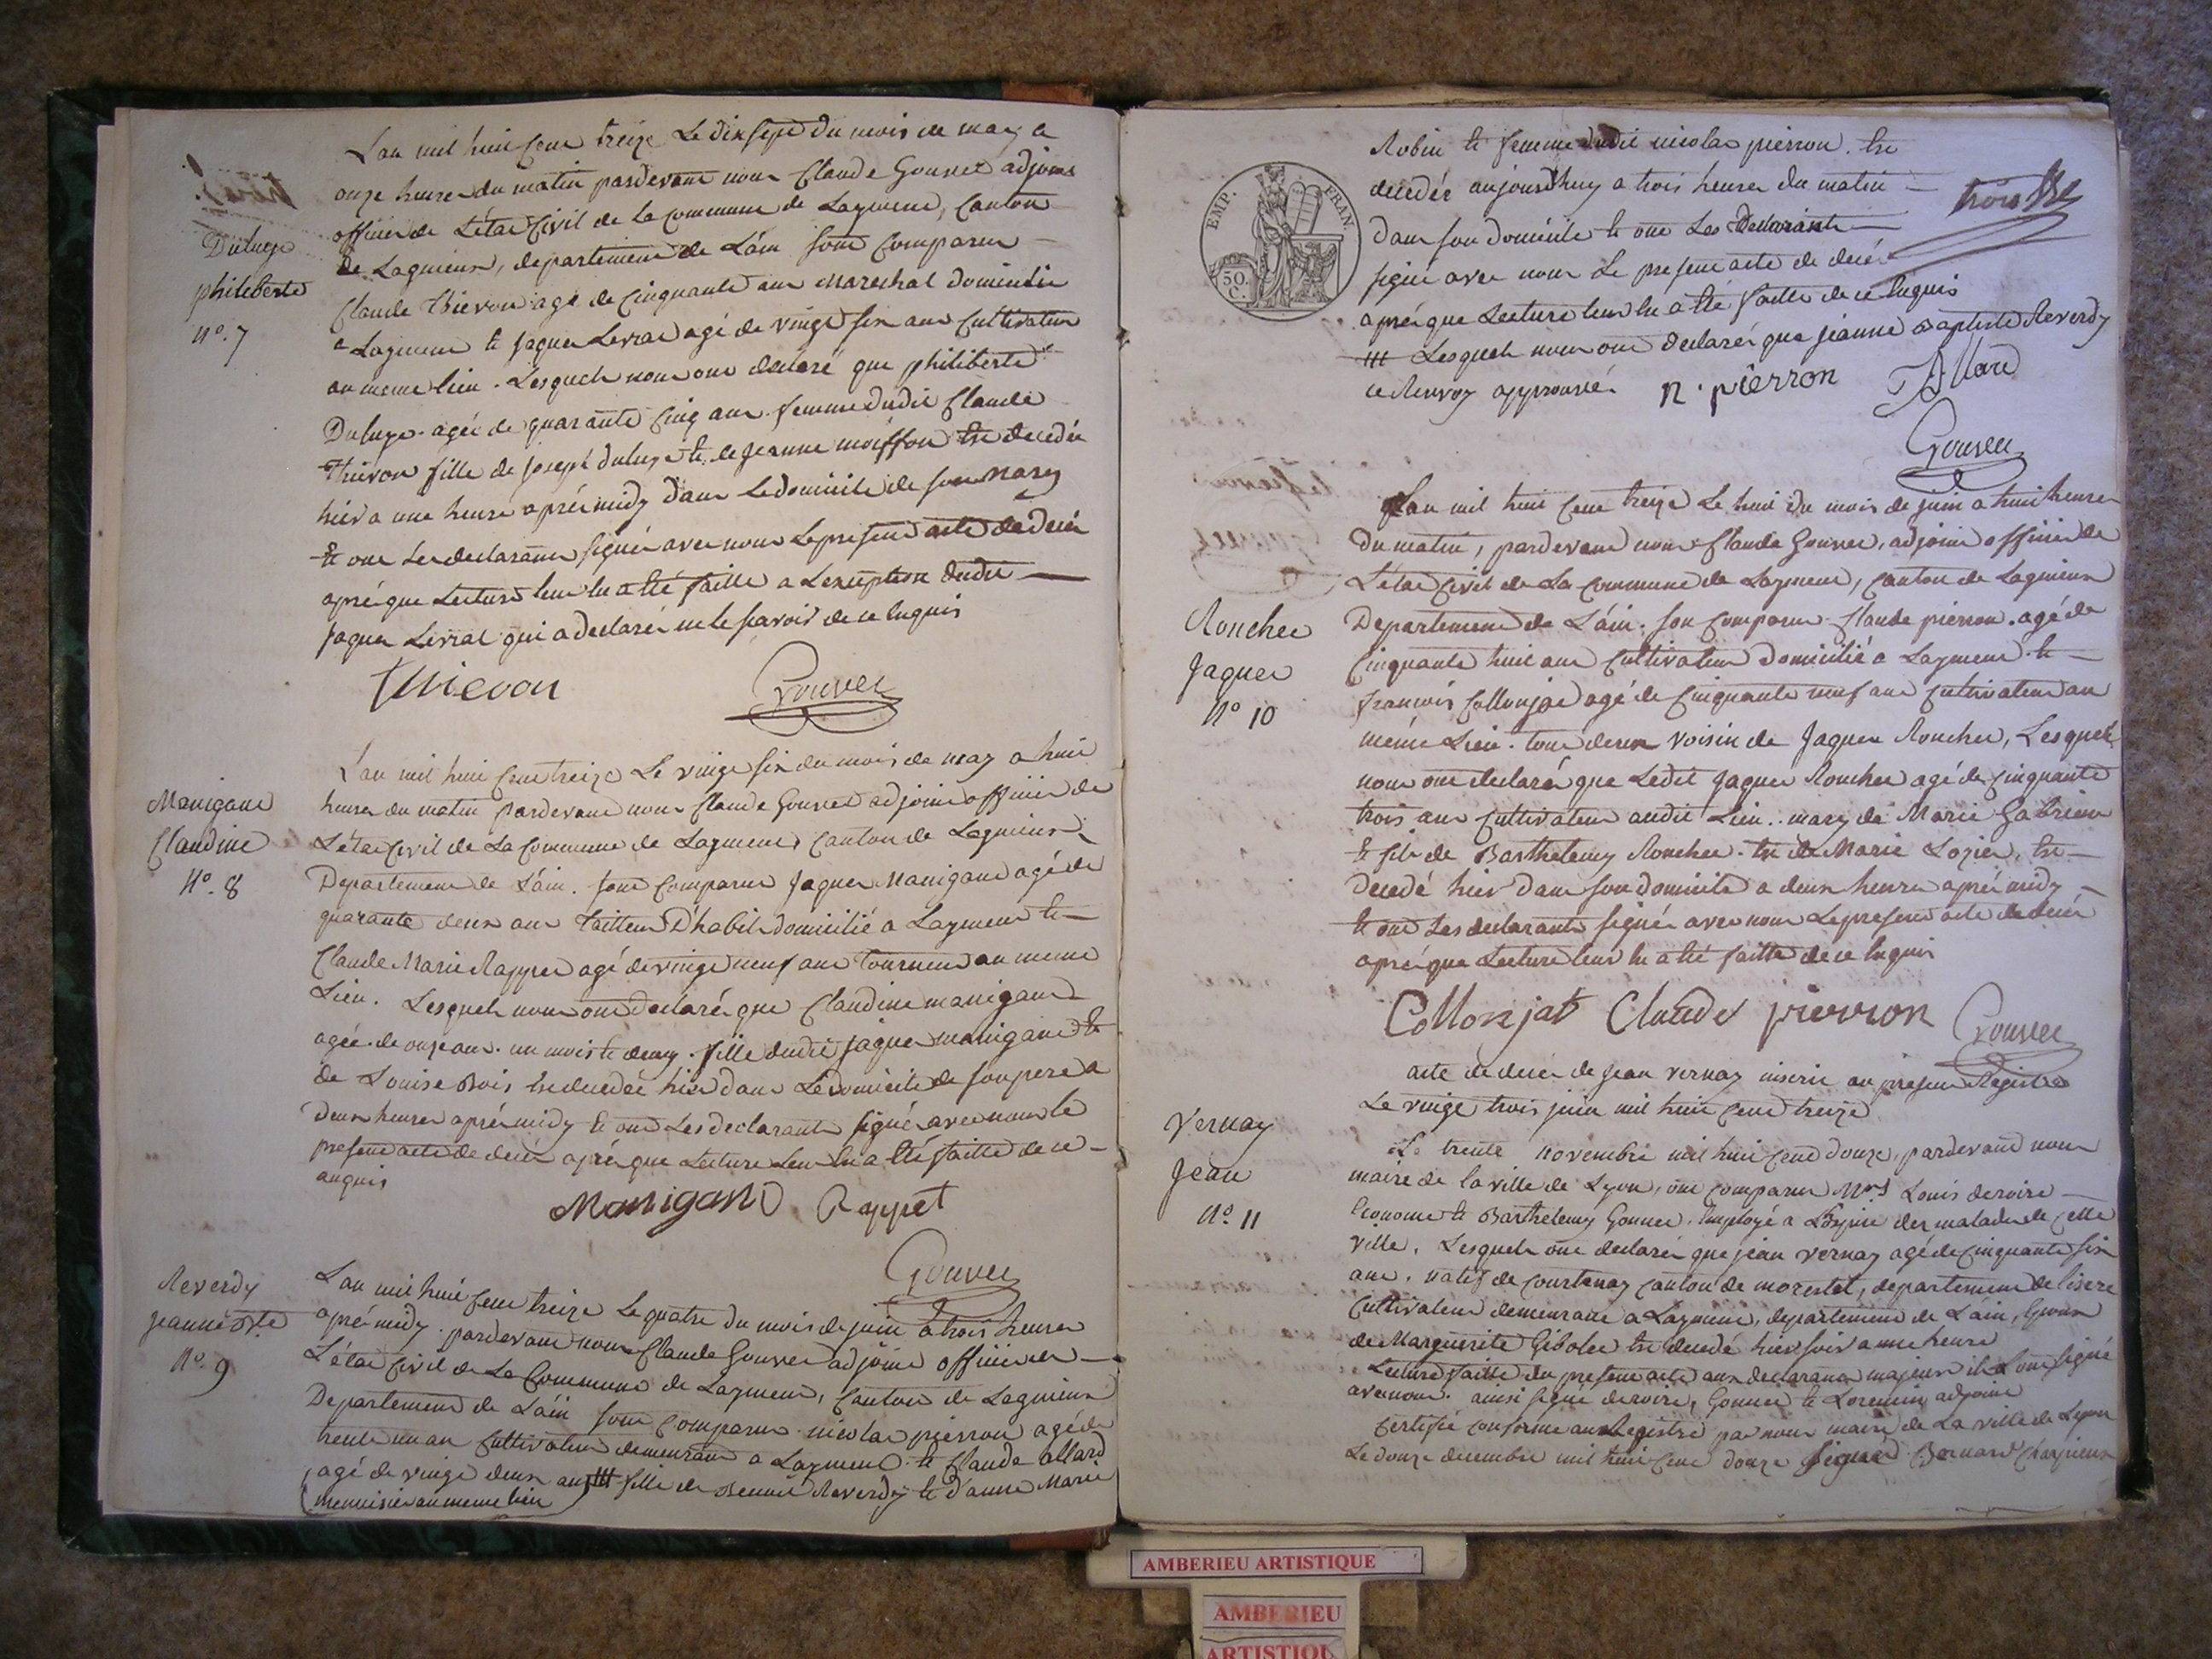 L'an mil huit cent treize Le dix sept du mois de may a
onze heures du matin pardevant nous Claude Gouvet adjoint
officier de L'état Civil de la Commune de Lagnieu, Canton
de Lagnieux, departement de L'ain sont Comparus
Claude Thievon agé de Cinquante ans Marechal domicilié
a Layment et Jaques Levrat agé de vingt six ans Cultivateur
au meme lieu. Lesquels nous ont declaré que philiberte
Duluye agée de quarante Cinq ans femme dudit Claude
Thievon fille de Joseph duluye et de Jeanne moisson est decedée
hier a une heure aprés midy dans Le domicile de son mary
et ont Les declarants signés avec nous Le present acte de decés
aprés que Lecture leur en a été faitte a Lexception dudit
Jaques Levrat qui a declaré ne le scavoir de ce enquis
Thievon Gouvet
Duluye
philiberte
N°. 7
Manigand
Claudine
N°. 8
L'an mil huit Cent treize Le vingt six du mois de may a huit
heures du matin pardevant nous Claude Gouvet adjoint officier de
L'état Civil de La Commune de Layment Canton de Lagnieux
Departement de L'ain. sont Comparus Jaques Manigand agé de
quarante deux ans Tailleur D'habits domicilié a Layment et
Claude Marie Rappet agé de vingt neuf ans Tourneur au meme
Lieu. Lesquels nous ont declaré que Claudine manigand
agée de onze ans. un mois et demy. fille dudit Jaques manigand et
de Louise Bois est decedée hier dans Le domicile de son pere a
Deux heures aprés midy et ont Les declarants signé avec nous Le
present acte de decés aprés que Lecture Leur en a été faitte de ce
enquis
Manigand Rappet
Gouvet
Reverdy
Jeanne Bte
N°. 9
L'an mil huit Cent treize Le quatre du mois de juin a trois heures
aprés midy. pardevant nous Claude Gouvet adjoint officier de
L'état Civil de La Commune de Layment, Canton de Lagnieux
Departement de L'ain sont Comparus. nicolas pierron agé de
trente un an Cultivateur demeurant a Layment et Claude allard
agé de vingt deux ans fille de Benoit Reverdy et d'anne Marie
(menuisier au meme lieu)
EMP. FRAN.
50 C.
Robin et femme dudit nicolas pierron. est
decedée aujourd'huy a trois heures du matin
dans son domicile et ont Les Declarants
signé avec nous Le present acte de decés
aprés que Lecture leur en a été faitte de ce enquis
Lesquels nous ont declaré que jeanne Baptiste Reverdy
ce Renvoy approuvé. n. pierron Allard
Gouvet
L'an mil huit Cent treize Le huit du mois de juin a huit heures
du matin, pardevant nous Claude Gouvet, adjoint officier de
L'état Civil de La Commune de Layment, Canton de Lagnieux
Departement de L'ain. son Comparus Claude pierron. agé de
Cinquante huit ans Cultivateur Domicilié a Layment et
françois Collonjat agé de Cinquante neuf ans Cultivateur au
même Lieu. tous deux voisin de Jaques Ronchet, Lesquels
nous ont declaré que Ledit Jaques Ronchet agé de Cinquante
trois ans Cultivateur audit Lieu. mary de Marie Gabrion
et fils de Barthelemy Ronchet. et de Marie Lozier, est
Decedé hier dans son domicile a deux heures aprés midy
et ont Les declarants signés avec nous Le present acte de decés
aprés que Lecture leur en a été faitte de ce enquis
Collonjat Claude pierron Gouvet
Ronchet
Jaques
N° 10
acte de decés de Jean vernay inscrit au present Registre
Le vingt trois juin mil huit Cent treize
Vernay
Jean
N°. 11
Le trente novembre mil huit Cent douze, pardevant nous
maire de la ville de Lyon, ont Comparus Mrs Louis deroire
Econome et Barthelemy Gonnet. Employé a L'hospice des malades de Cette
ville. Lesquels ont declaré que jean vernay agé de Cinquante six
ans. natif de Courtenay Canton de morestel, departement de lisere
Cultivateur demeurant a Layment, departement de L'ain, Epoux
de Marguerite Gebolet est decedé hier soir a une heure
Lecture faitte du present acte aux declarants majeurs ils L'ont signé
avec nous. ainsi signé deroire, Gonnet et adjoint
Certifié Conforme au Registre par nous maire de La ville de Lyon
Le douze decembre mil huit Cent douze signé Bernard Charpieux
AMBERIEU ARTISTIQUE
AMBERIEU
ARTISTIQU